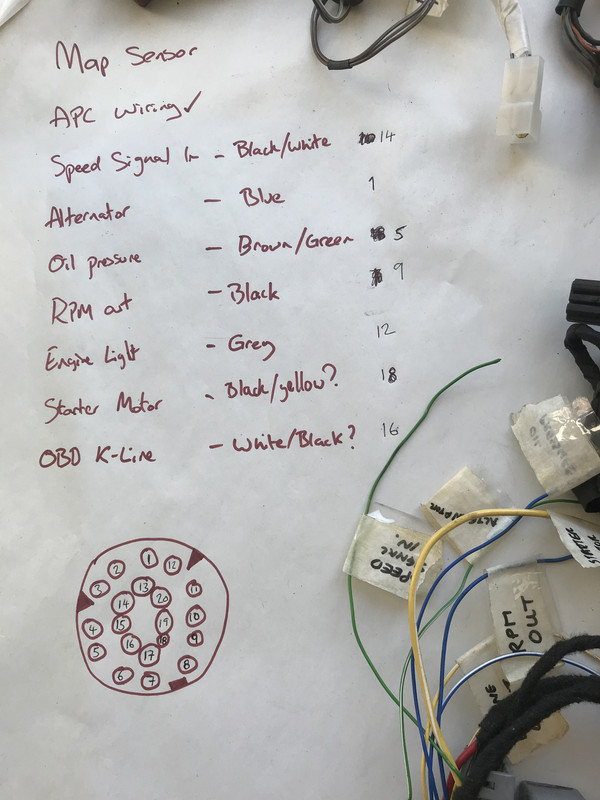 Map Sensor
APC wiring ✓
Speed Signal In - Black/White 14
Alternator - Blue 1
Oil pressure - Brown/Green 5
RPM out - Black 9
Engine Light - Grey 12
Starter Motor - Black/yellow? 18
OBD K-Line - White/Black? 16
ALTERNATOR
SPEED
SIGNAL
IN.
RPM
OUT
1
2 12
3 13 11
14 20
4 15 19 10
5 16 18 9
17 8
6 7